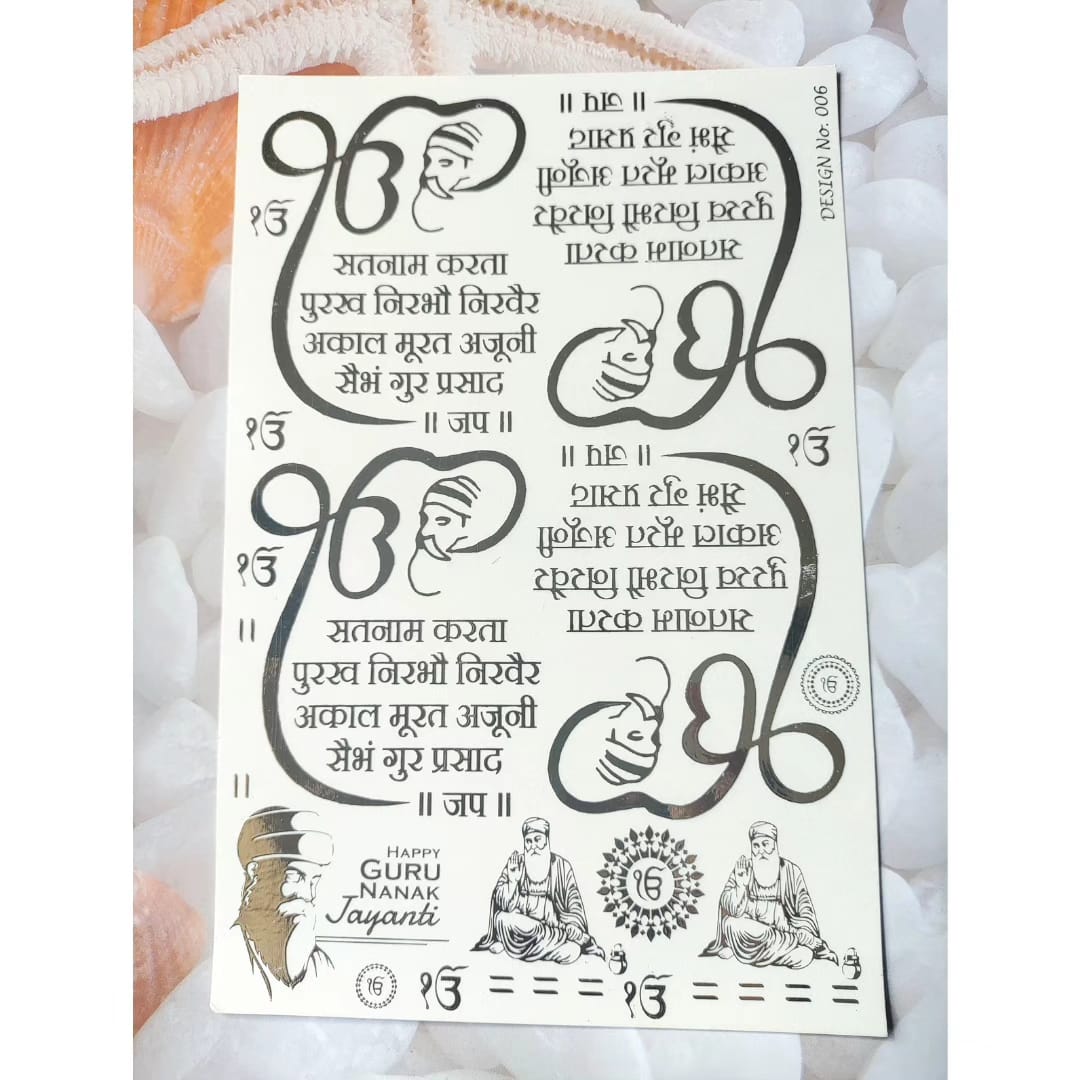 १ੳ
सतनाम करता
पुरख निरभौ निरवैर
अकाल मूरत अजूनी
सैभं गुर प्रसाद
॥ जप ॥
सतनाम करता
पुरख निरभौ निरवैर
अकाल मूरत अजूनी
सैभं गुर प्रसाद
॥ जप ॥
DESIGN No. 006
१ੳ
१ੳ
१ੳ
सतनाम करता
पुरख निरभौ निरवैर
अकाल मूरत अजूनी
सैभं गुर प्रसाद
॥ जप ॥
सतनाम करता
पुरख निरभौ निरवैर
अकाल मूरत अजूनी
सैभं गुर प्रसाद
॥ जप ॥
HAPPY
GURU
NANAK
Jayanti
ੴ
ੴ
ੴ
१ੳ
१ੳ